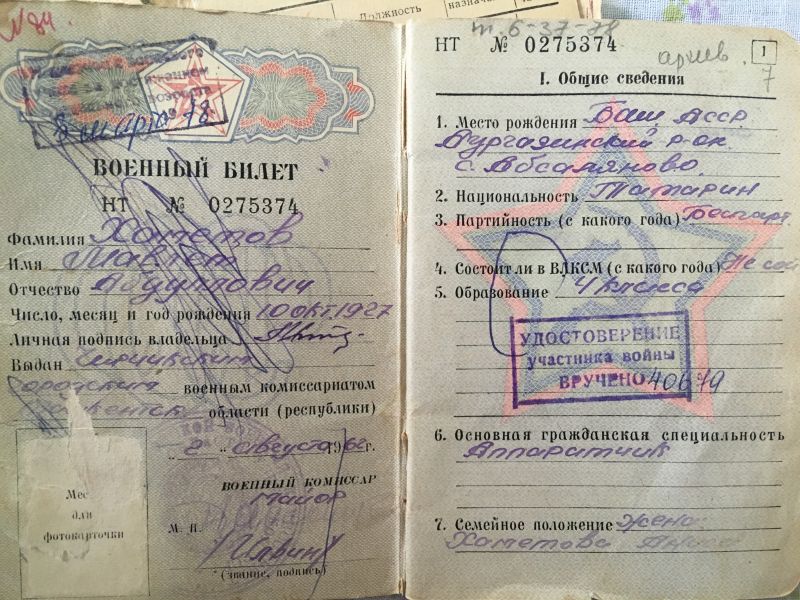 Должность
№ 84.
8 марта 78
ВОЕННЫЙ БИЛЕТ
НТ № 0275374
Фамилия Хаметов
Имя
Отчество
Число, месяц и год рождения 10 окт. 1927
Личная подпись владельца
Выдан Чирчикским
городским военным комиссариатом
области (республики)
2 " августа 1962 г.
ВОЕННЫЙ КОМИССАР
Майор
М. П.
(звание, подпись)
Мес
для
фотокарточки
т. 6-37-78
НТ № 0275374
архив.
1
7
I. Общие сведения
1. Место рождения Баш АССР
Аургазинский р-он
с. Абсаляново.
2. Национальность Татарин
3. Партийность (с какого года) Беспарт.
4. Состоит ли в ВЛКСМ (с какого года) Не сос
5. Образование 4 класса
УДОСТОВЕРЕНИЕ
участника войны
ВРУЧЕНО 40679
6. Основная гражданская специальность
Аппаратчик
7. Семейное положение Жена
Хаметова